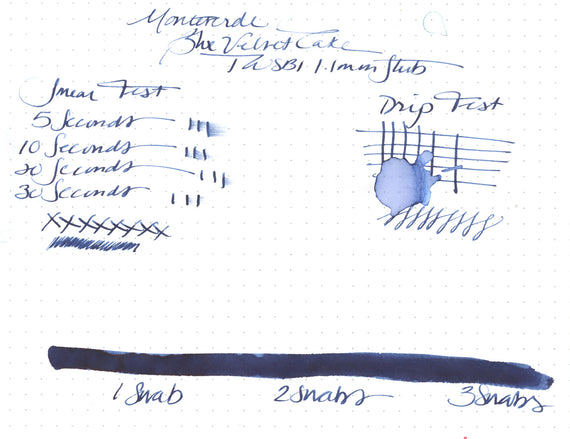 Monteverde
Blue Velvet Cake
TWSBI 1.1mm Stub
Smear Test
5 Seconds
10 Seconds
20 Seconds
30 Seconds
XXXXXXXX
Drip Test
1 Swab
2 Swabs
3 Swabs